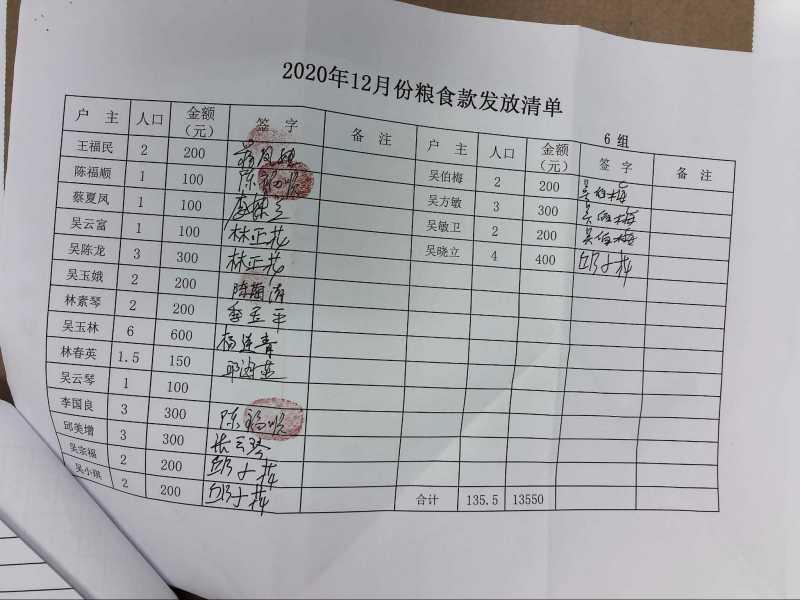 2020年12月份粮食款发放清单
6 组
户 主 人口 金额（元） 签 字 备 注 户 主 人口 金额（元） 签 字 备 注
王福民 2 200 吴伯梅 2 200 吴伯梅
陈福顺 1 100 陈福顺 吴方敏 3 300 吴伯梅
蔡夏凤 1 100 吴敏卫 2 200 吴伯梅
吴云富 1 100 林正花 吴晓立 4 400
吴陈龙 3 300 林正花
吴玉娥 2 200 陈菊清
林素琴 2 200
吴玉林 6 600 杨莲青
林春英 1.5 150
吴云琴 1 100
李国良 3 300 陈福顺
邱美增 3 300
吴宗福 2 200
吴小琪 2 200 合计 135.5 13550